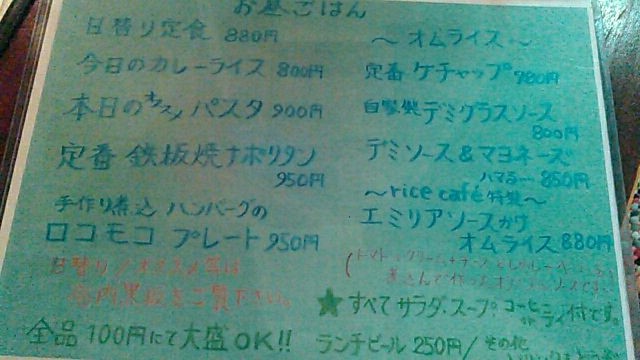 お昼ごはん
日替り定食 880円
今日のカレーライス 800円
本日のオススメパスタ 900円
定番 鉄板焼ナポリタン
950円
手作り煮込 ハンバーグの
ロコモコ プレート 950円
日替り/オススメ等は
店内黒板をご覧下さい。
全品 100円にて大盛OK!!
〜オムライス〜
定番 ケチャップ 780円
自家製 デミグラスソース
800円
デミソース&マヨネーズ
ハマるー 850円
〜rice café 特製〜
エミリアソース
オムライス 880円
★すべてサラダ、スープ、コーヒー
付です。
ランチビール 250円/ その他